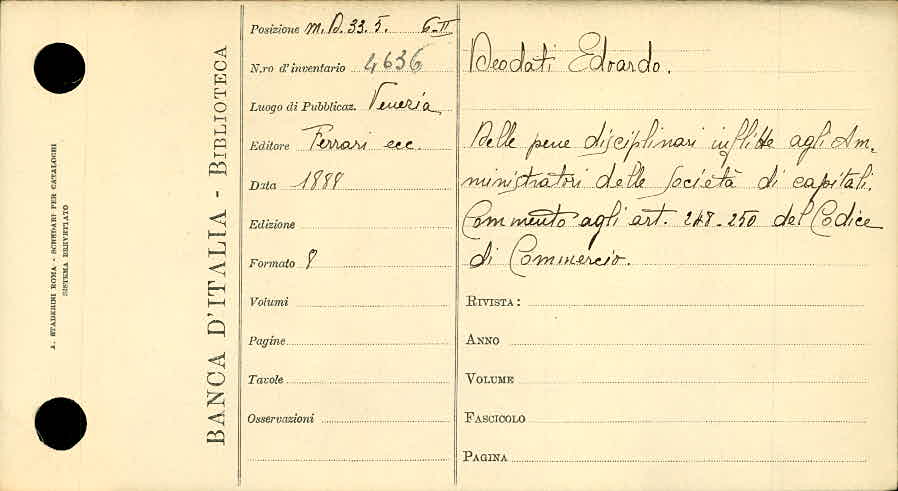 A. STADERINI ROMA - SCHEDARI PER CATALOGHI
SISTEMA BREVETTATO
BANCA D'ITALIA - BIBLIOTECA
Posizione M.D.33.5. 6-II
N.ro d'inventario 4636
Luogo di Pubblicaz. Venezia
Editore Ferrari ecc.
Data 1888
Edizione
Formato 8
Volumi
Pagine
Tavole
Osservazioni
Deodati Edoardo.
Delle pene disciplinari inflitte agli Am-
ministratori delle Società di capitali.
Commento agli art. 248-250 del Codice
di Commercio.
RIVISTA:
ANNO
VOLUME
FASCICOLO
PAGINA